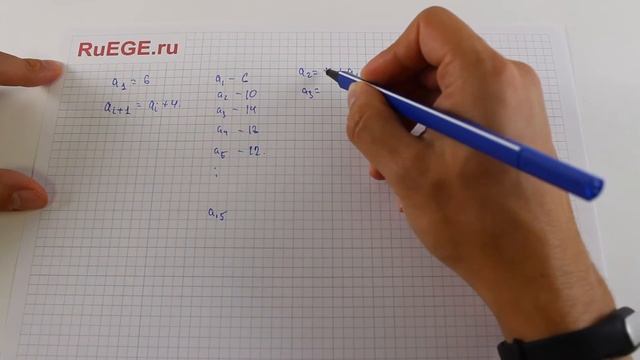 RuEGE.ru
a₁ = 6
aᵢ₊₁ = aᵢ + 4.
a₁ – 6
a₂ – 10
a₃ – 14
a₄ – 18
a₅ – 22.
⋮
a₁₅
a₂ =
a₃ =